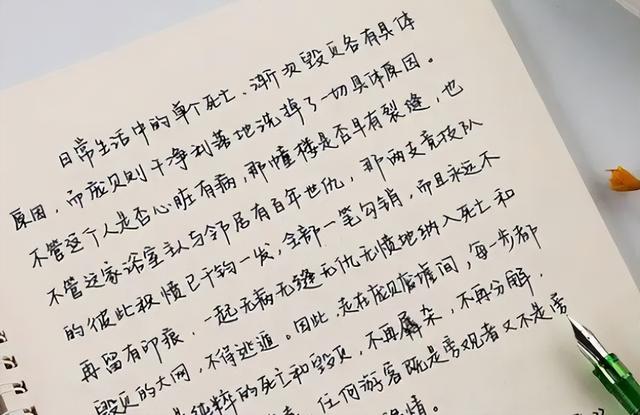 日常生活中的单个死亡、渐次毁灭各有具体
原因，而庞贝则干净利落地洗掉了一切具体原因。
不管这个人是否心脏有病，那幢楼是否早有裂缝，也
不管这家浴室主人与邻居有百年世仇，那两支竞技队
的彼此积愤已千钧一发，全部一笔勾销，而且永远不
再留有印痕，一起无病无缝无仇无愤地纳入死亡和
毁灭的大网，不得逃遁。因此，走在庞贝废墟间，每一步都
是纯粹的死亡和毁灭，不再羼杂，不再分解，
任何游客既是旁观者又不是旁
情。